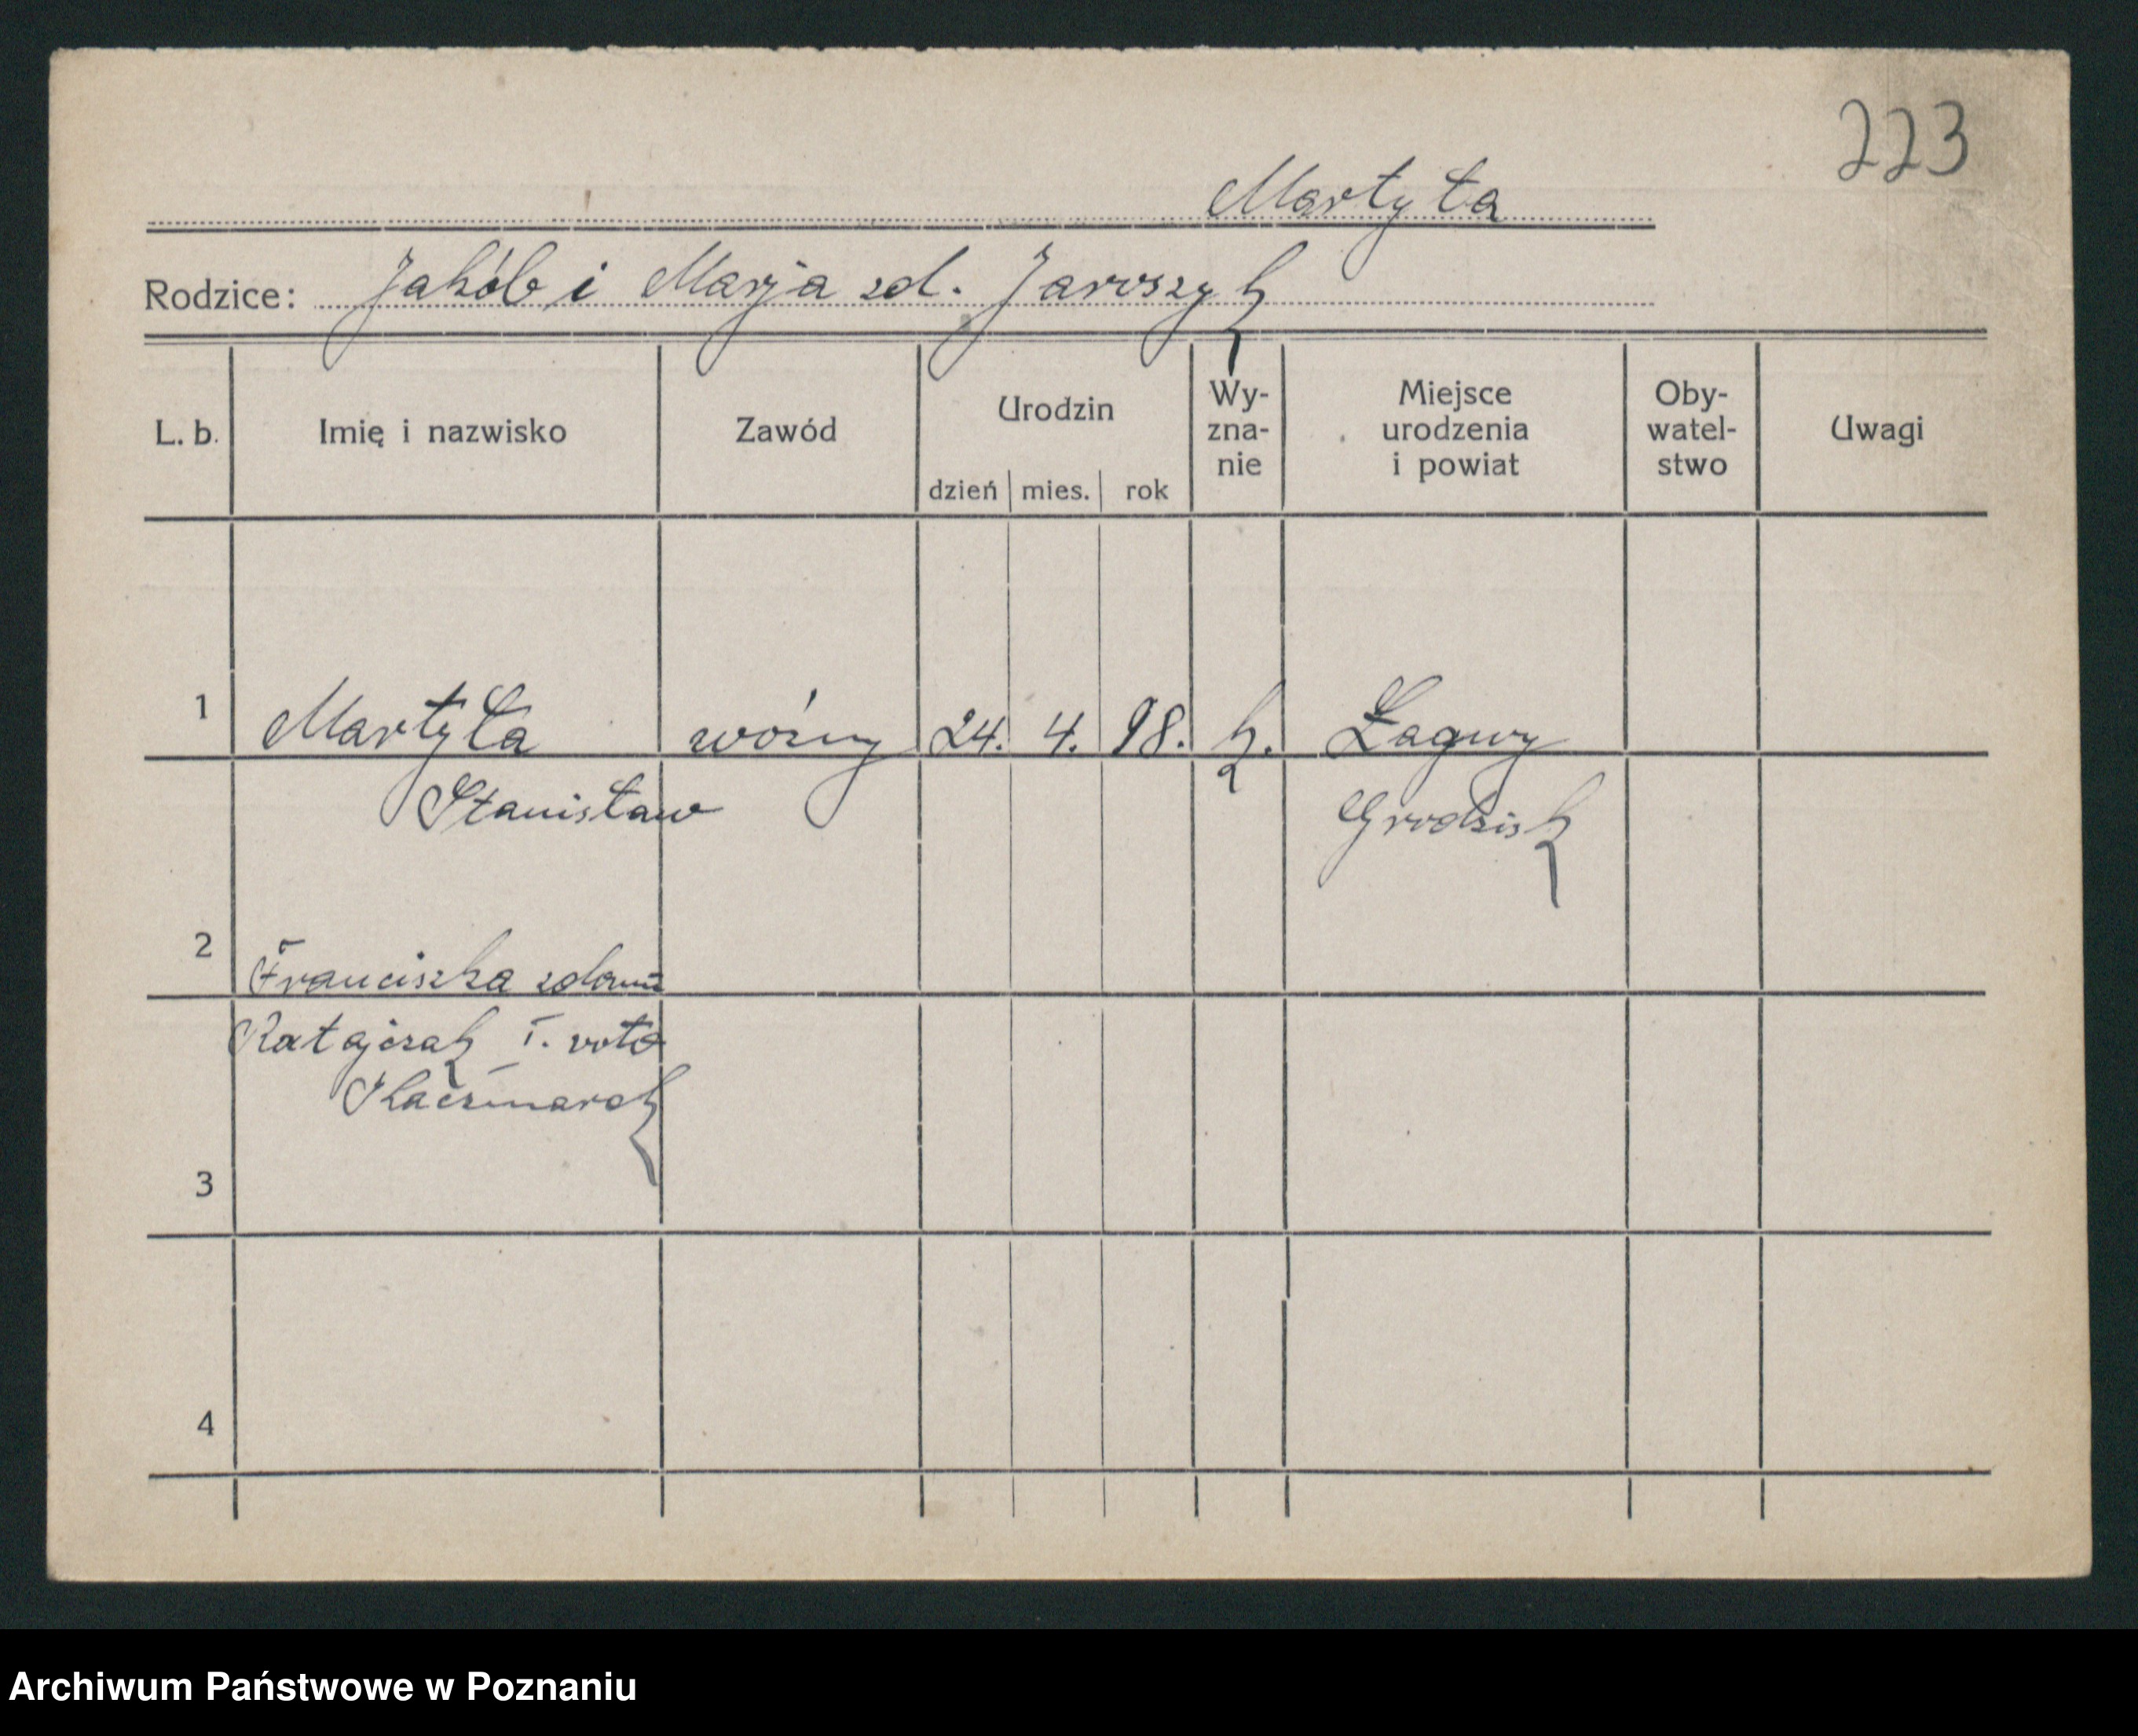 223
Martyła
Rodzice: Jakób i Marja zd. Jaroszyk
L. b. Imię i nazwisko Zawód Urodzin dzień mies. rok Wy-zna-nie Miejsce urodzenia i powiat Oby-watel-stwo Uwagi
1 Martyła woźny 24. 4. 98. k. Łagwy
Stanisław Grodzisk
2 Franciszka zdomu
Ratajczak I. voto
Kaczmarek
3
4
Archiwum Państwowe w Poznaniu